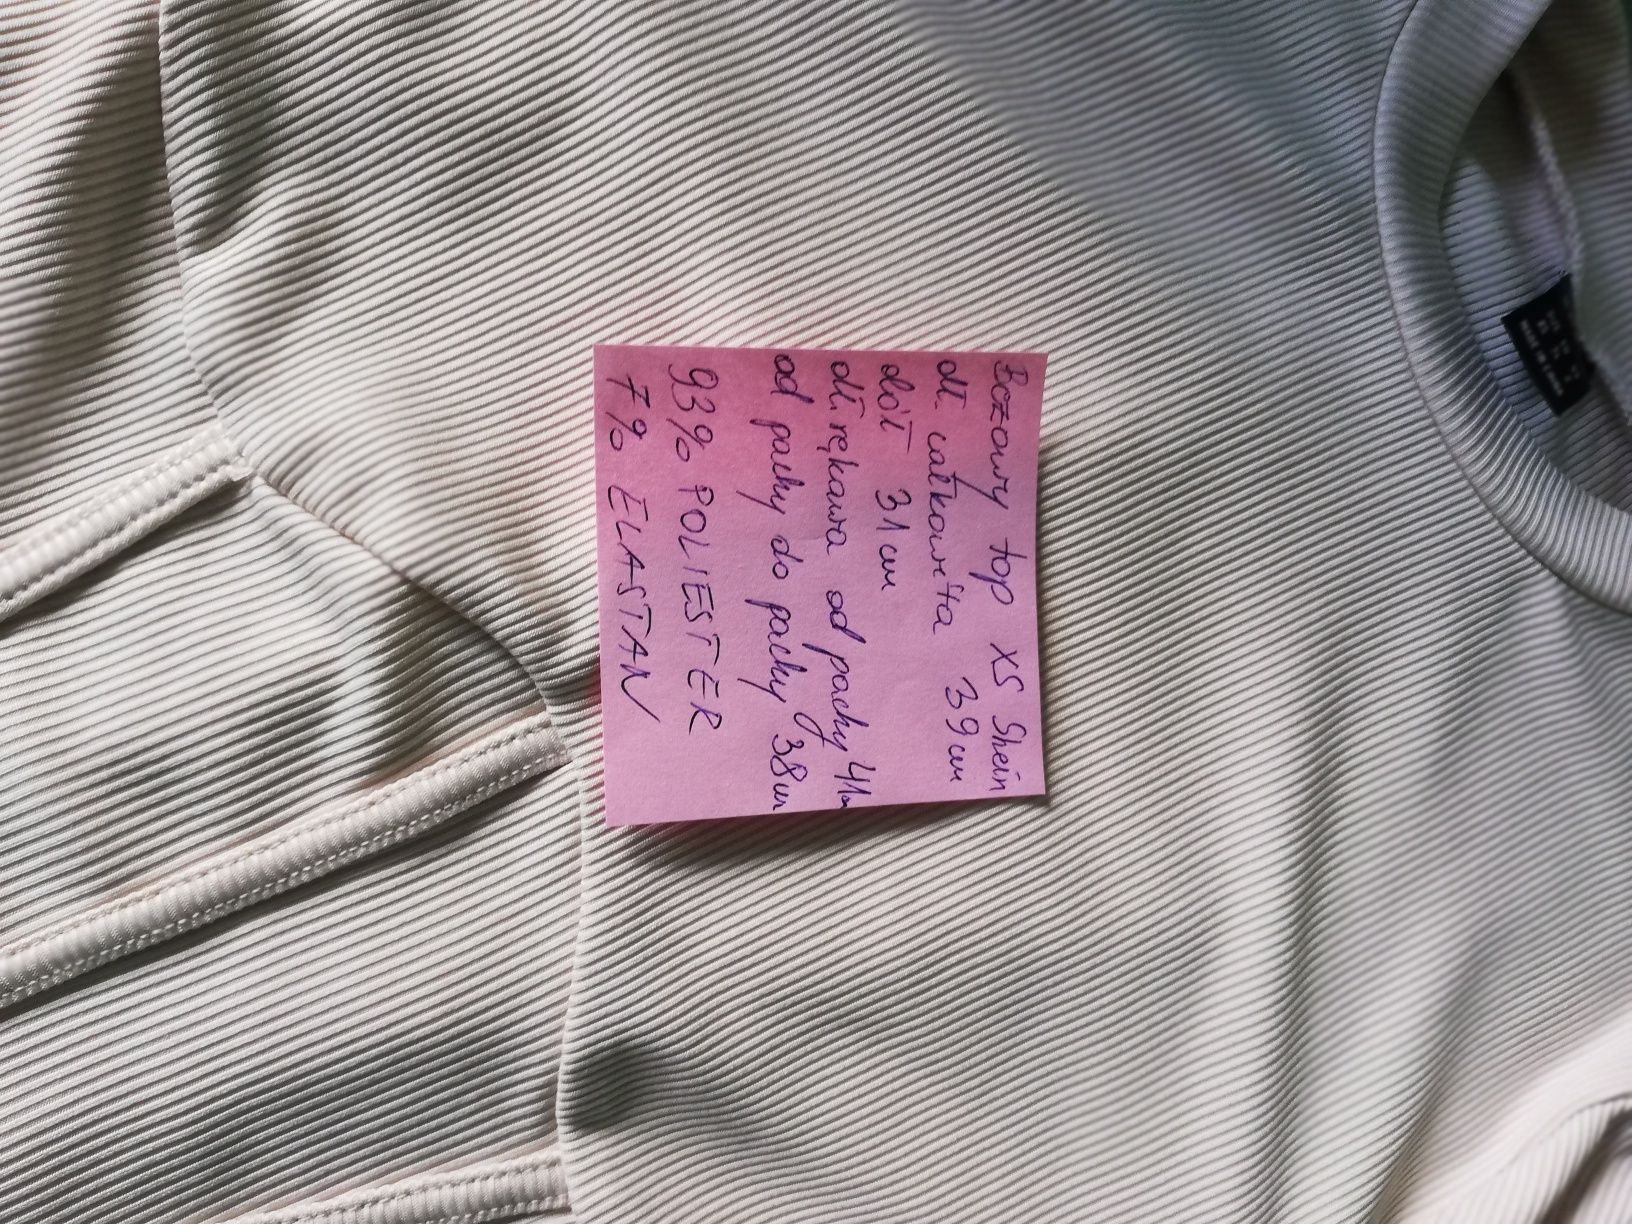 Beżowy top XS Shein
dł. całkowita 39cm
dół 31cm
dł. rękawa od pachy 41cm
od pachy do pachy 38cm
93% POLIESTER
7% ELASTAN